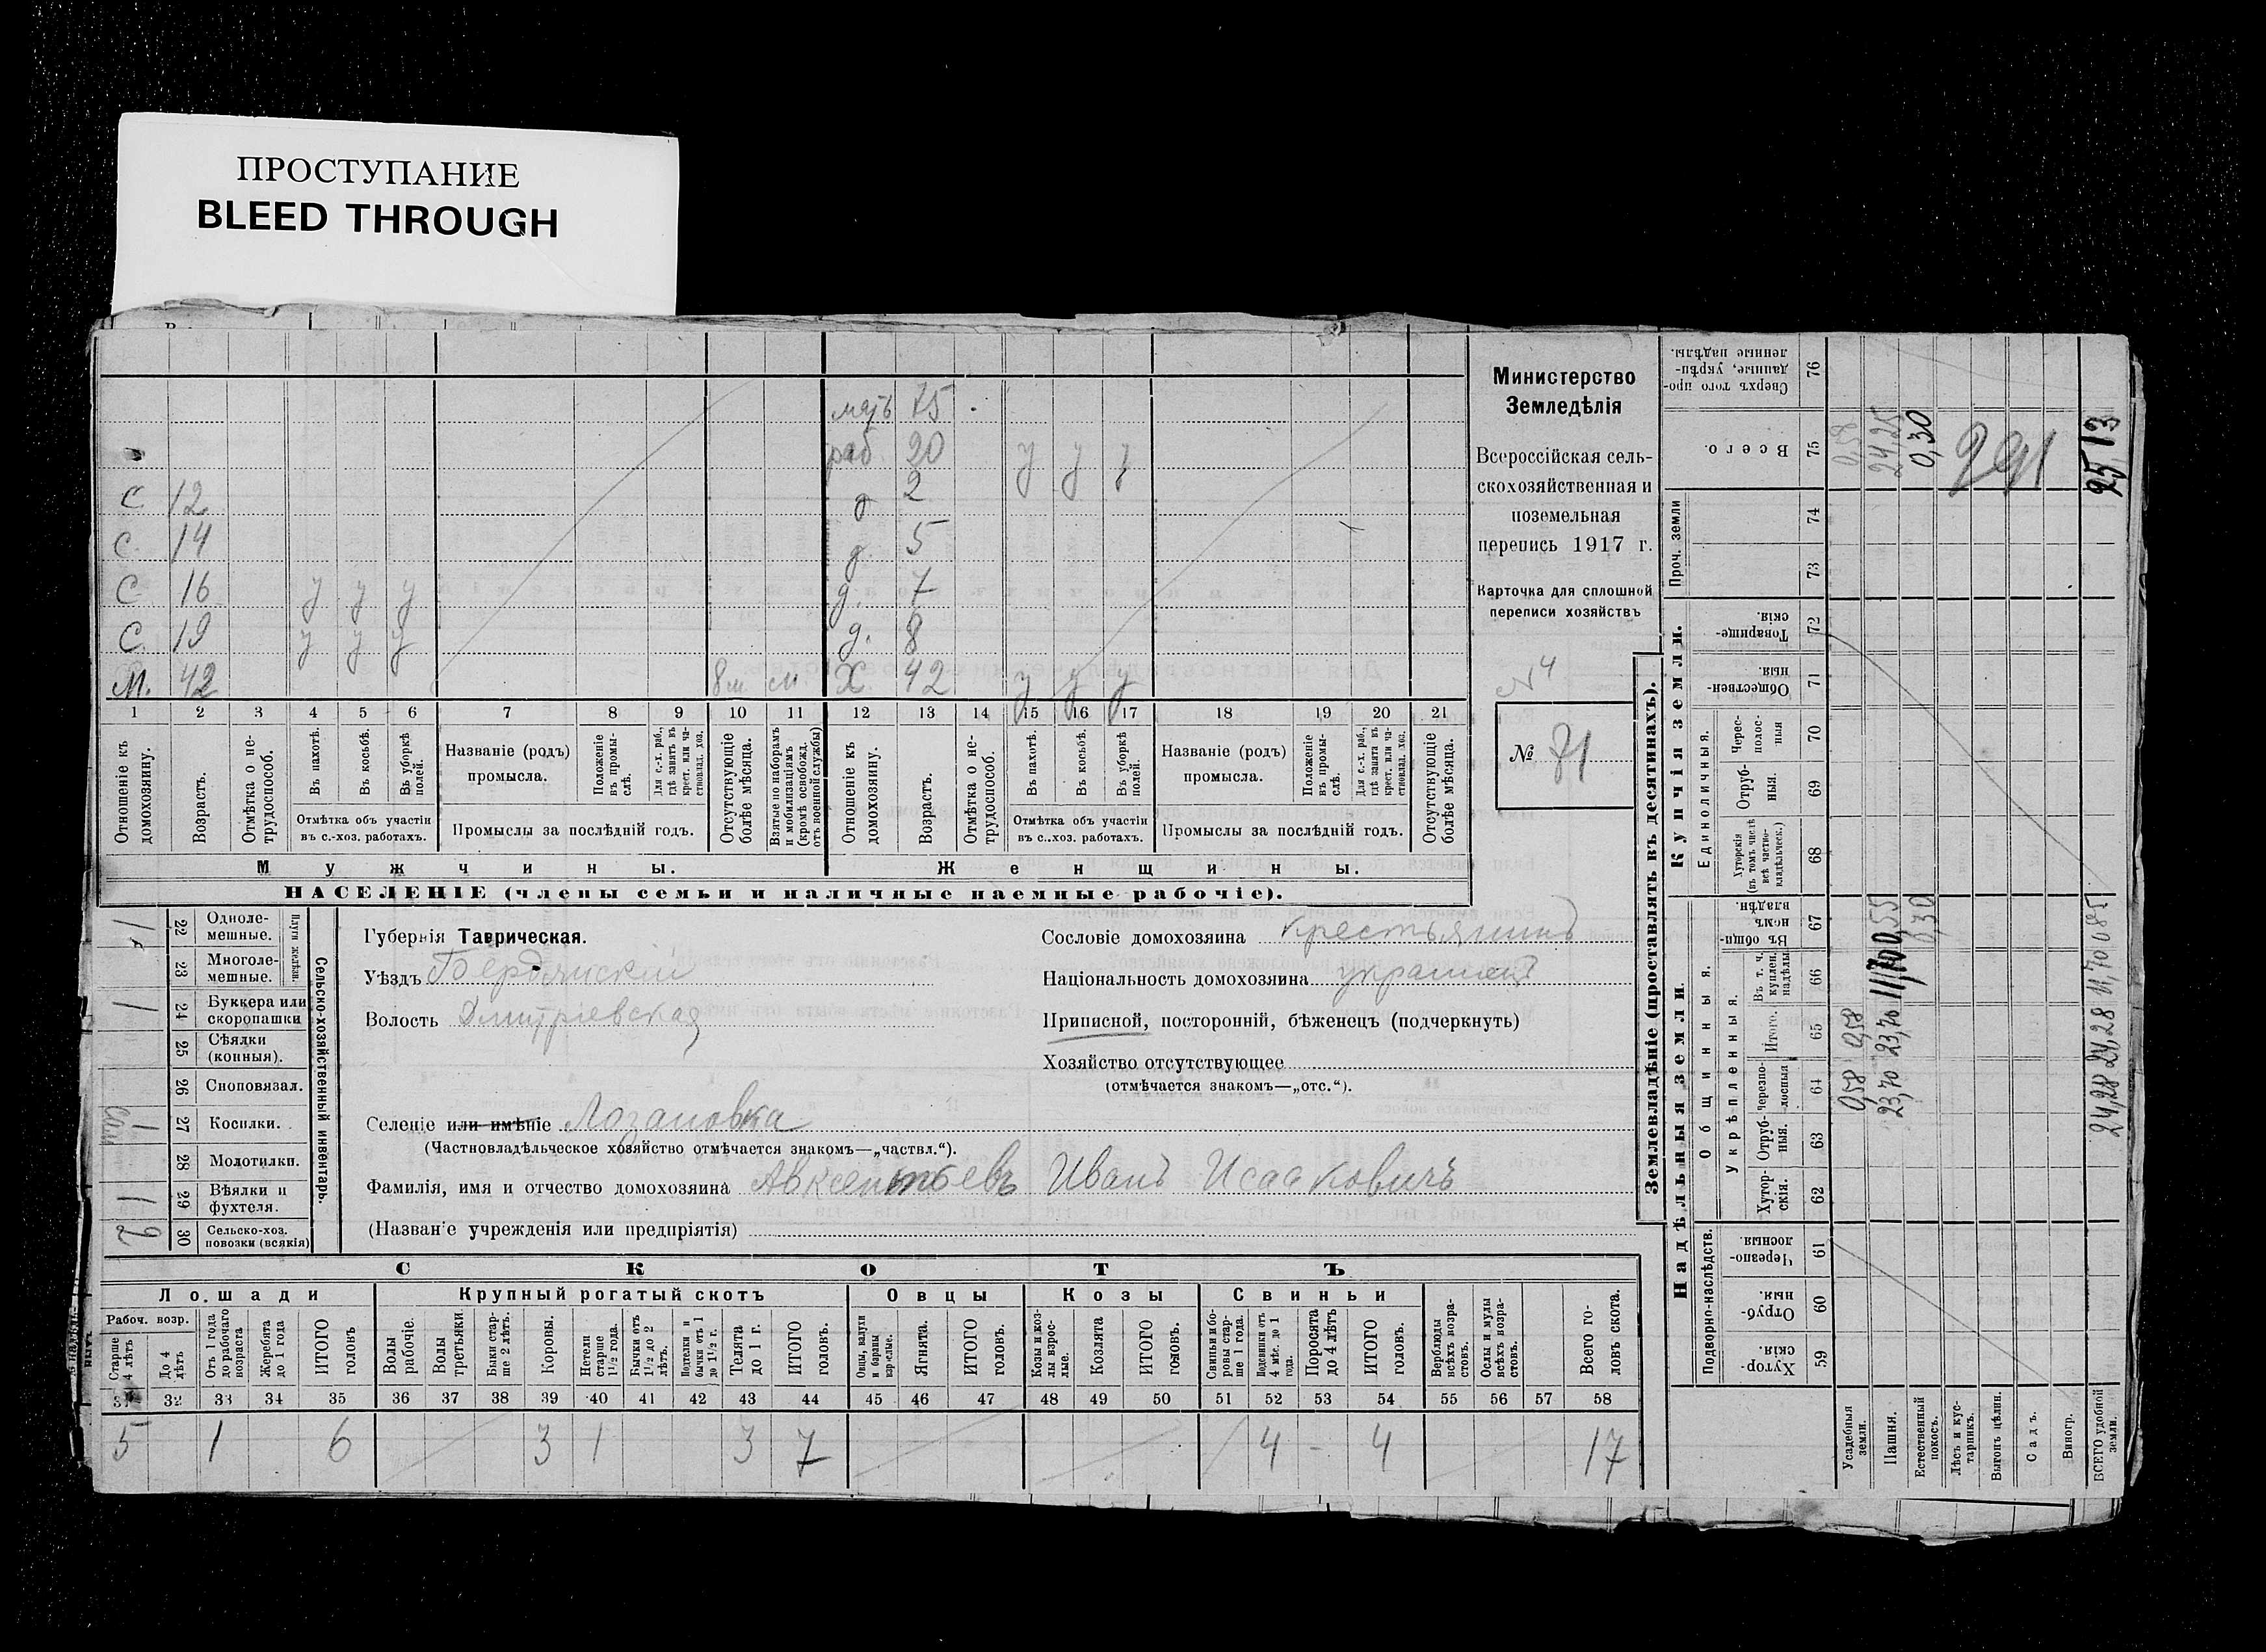 ПРОСТУПАНИЕ
BLEED THROUGH
мать 75
раб 20 у у у
С 12 д 2
С. 14 д. 5
С 16 у у у д. 7
С. 19 у у у д. 8
М. 42 8м м Х 42 у у у
1 2 3 4 5 6 7 8 9 10 11 12 13 14 15 16 17 18 19 20 21
Отношеніе къ домохозяину.
Возрастъ.
Отмѣтка о не-трудоспособ.
Въ пахотѣ.
Въ косьбѣ.
Въ уборкѣ полей.
Отмѣтка объ участіи
въ с.-хоз. работахъ.
Названіе (родъ)
промысла.
Положеніе въ промы-слѣ.
Для с.-х. раб., гдѣ занятъ въ крест. или ча-стновлад. хоз.
Промыслы за послѣдній годъ.
Отсутствующіе болѣе мѣсяца.
Взятые по наборамъ и мобилизаціямъ (кромѣ освобожд. отъ военной службы)
Отношеніе къ домохозяину.
Возрастъ.
Отмѣтка о не-трудоспособ.
Въ пахотѣ.
Въ косьбѣ.
Въ уборкѣ полей.
Отмѣтка объ участіи
въ с..хоз. работахъ.
Названіе (родъ)
промысла.
Положеніе въ промы-слѣ.
Для с.-х. раб., гдѣ занята въ крест. или ча-стновлад. хоз.
Промыслы за послѣдній годъ.
Отсутствующіе болѣе мѣсяца.
Мужчины.
Женщины.
НАСЕЛЕНІЕ (члены семьи и наличные наемные рабочіе).
Министерство
Земледѣлія
Всероссійская сель-
скохозяйственная и
поземельная
перепись 1917 г.
Карточка для сплошной
переписи хозяйствъ
№ 4
№ 71
Сельско-хозяйственный инвентарь.
Плуги желѣзн.
1 22 Одноле-мешные.
23 Многоле-мешные.
1 24 Буккера или скоропашки
25 Сѣялки (конныя).
26 Сноповязал.
1 27 Косилки.
28 Молотилки.
1 29 Вѣялки и фухтеля.
2 30 Сельско-хоз. повозки (всякія)
Губернія Таврическая.
Уѣздъ Бердянскій
Волость Дмитріевская
Селеніе или имѣніе Лозановка
(Частновладѣльческое хозяйство отмѣчается знакомъ—„частвл.“).
Фамилія, имя и отчество домохозяина Авксентьевъ Иванъ Исааковичъ
(Названіе учрежденія или предпріятія)
Сословіе домохозяина крестьянинъ
Національность домохозяина украинецъ
Приписной, посторонній, бѣженецъ (подчеркнуть)
Хозяйство отсутствующее
(отмѣчается знакомъ—„отс.“).
СКОТЪ
Лошади
Крупный рогатый скотъ
Овцы
Козы
Свиньи
Рабоч. возр.
Старше 4 лѣтъ
До 4 лѣтъ
Отъ 1 года до рабочаго возраста
Жеребята до 1 года
ИТОГО головъ
Волы рабочіе.
Волы третьяки.
Быки стар-ше 2 лѣтъ.
Коровы.
Нетели старше 1½ года.
Бычки отъ 1½ до 2 лѣтъ.
Подтелки и бычки отъ 1 до 1½ г.
Телята до 1 г.
ИТОГО головъ.
Овцы, валухи и бараны взрослые.
Ягнята.
ИТОГО головъ.
Козы и коз-лы взрос-лые.
Козлята
ИТОГО головъ.
Свиньи и бо-ровы стар-ше 1 года.
Подсвинки отъ 4 мѣс. до 1 года.
Поросята до 4 лѣтъ
ИТОГО головъ.
Верблюды всѣхъ возра-стовъ.
Ослы и мулы всѣхъ возра-стовъ.
Всего го-ловъ скота.
31 32 33 34 35 36 37 38 39 40 41 42 43 44 45 46 47 48 49 50 51 52 53 54 55 56 57 58
5 1 6 3 1 3 7 4 - 4 17
Землевладѣніе (проставлять въ десятинахъ).
Надѣльныя земли.
Купчія земли.
Проч. земли
Подворно-наслѣдств.
Общинныя.
Укрѣпленныя.
Единоличныя.
Сверхъ того про-данные, укрѣп-ленные надѣлы. 76
Всего. 75
74
73
Товарище-скія. 72
Обществен-ныя. 71
Черес-полос-ныя 70
Отруб-ныя. 69
Хуторскія (въ томъ числѣ всѣ частно-владѣльческ.) 68
Въ общи-номъ владѣн. 67
Въ т. ч. куплен. надѣлы 66
Итого. 65
Черезпо-лосныя 64
Отруб-ныя. 63
Хутор-скія. 62
Черезпо-лосныя 61
Отруб-ныя. 60
Хутор-скія. 59
Усадебныя земли. 0,58 0,58 0,58
Пашня. 23,70 23,70 11,70 0,55 24,25
Естественный покосъ. 0,30 0,30
Лѣсъ и кус-тарникъ.
Выгонъ цѣлин.
Садъ.
Виногр.
ВСЕГО удобной земли. 24,28 24,28 11,70 0,85 25,13
291